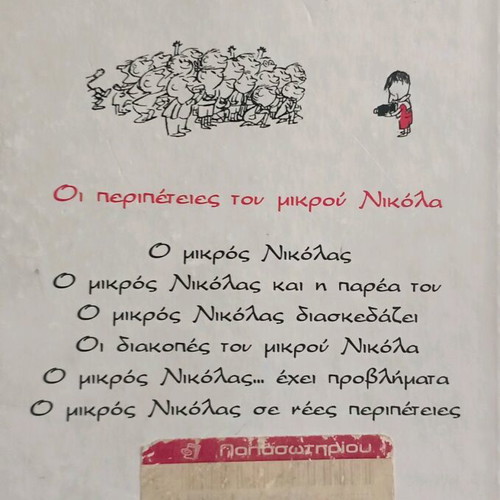 Οι περιπέτειες του μικρού Νικόλα
Ο μικρός Νικόλας
Ο μικρός Νικόλας και η παρέα του
Ο μικρός Νικόλας διασκεδάζει
Οι διακοπές του μικρού Νικόλα
Ο μικρός Νικόλας... έχει προβλήματα
Ο μικρός Νικόλας σε νέες περιπέτειες
Παπασωτηρίου